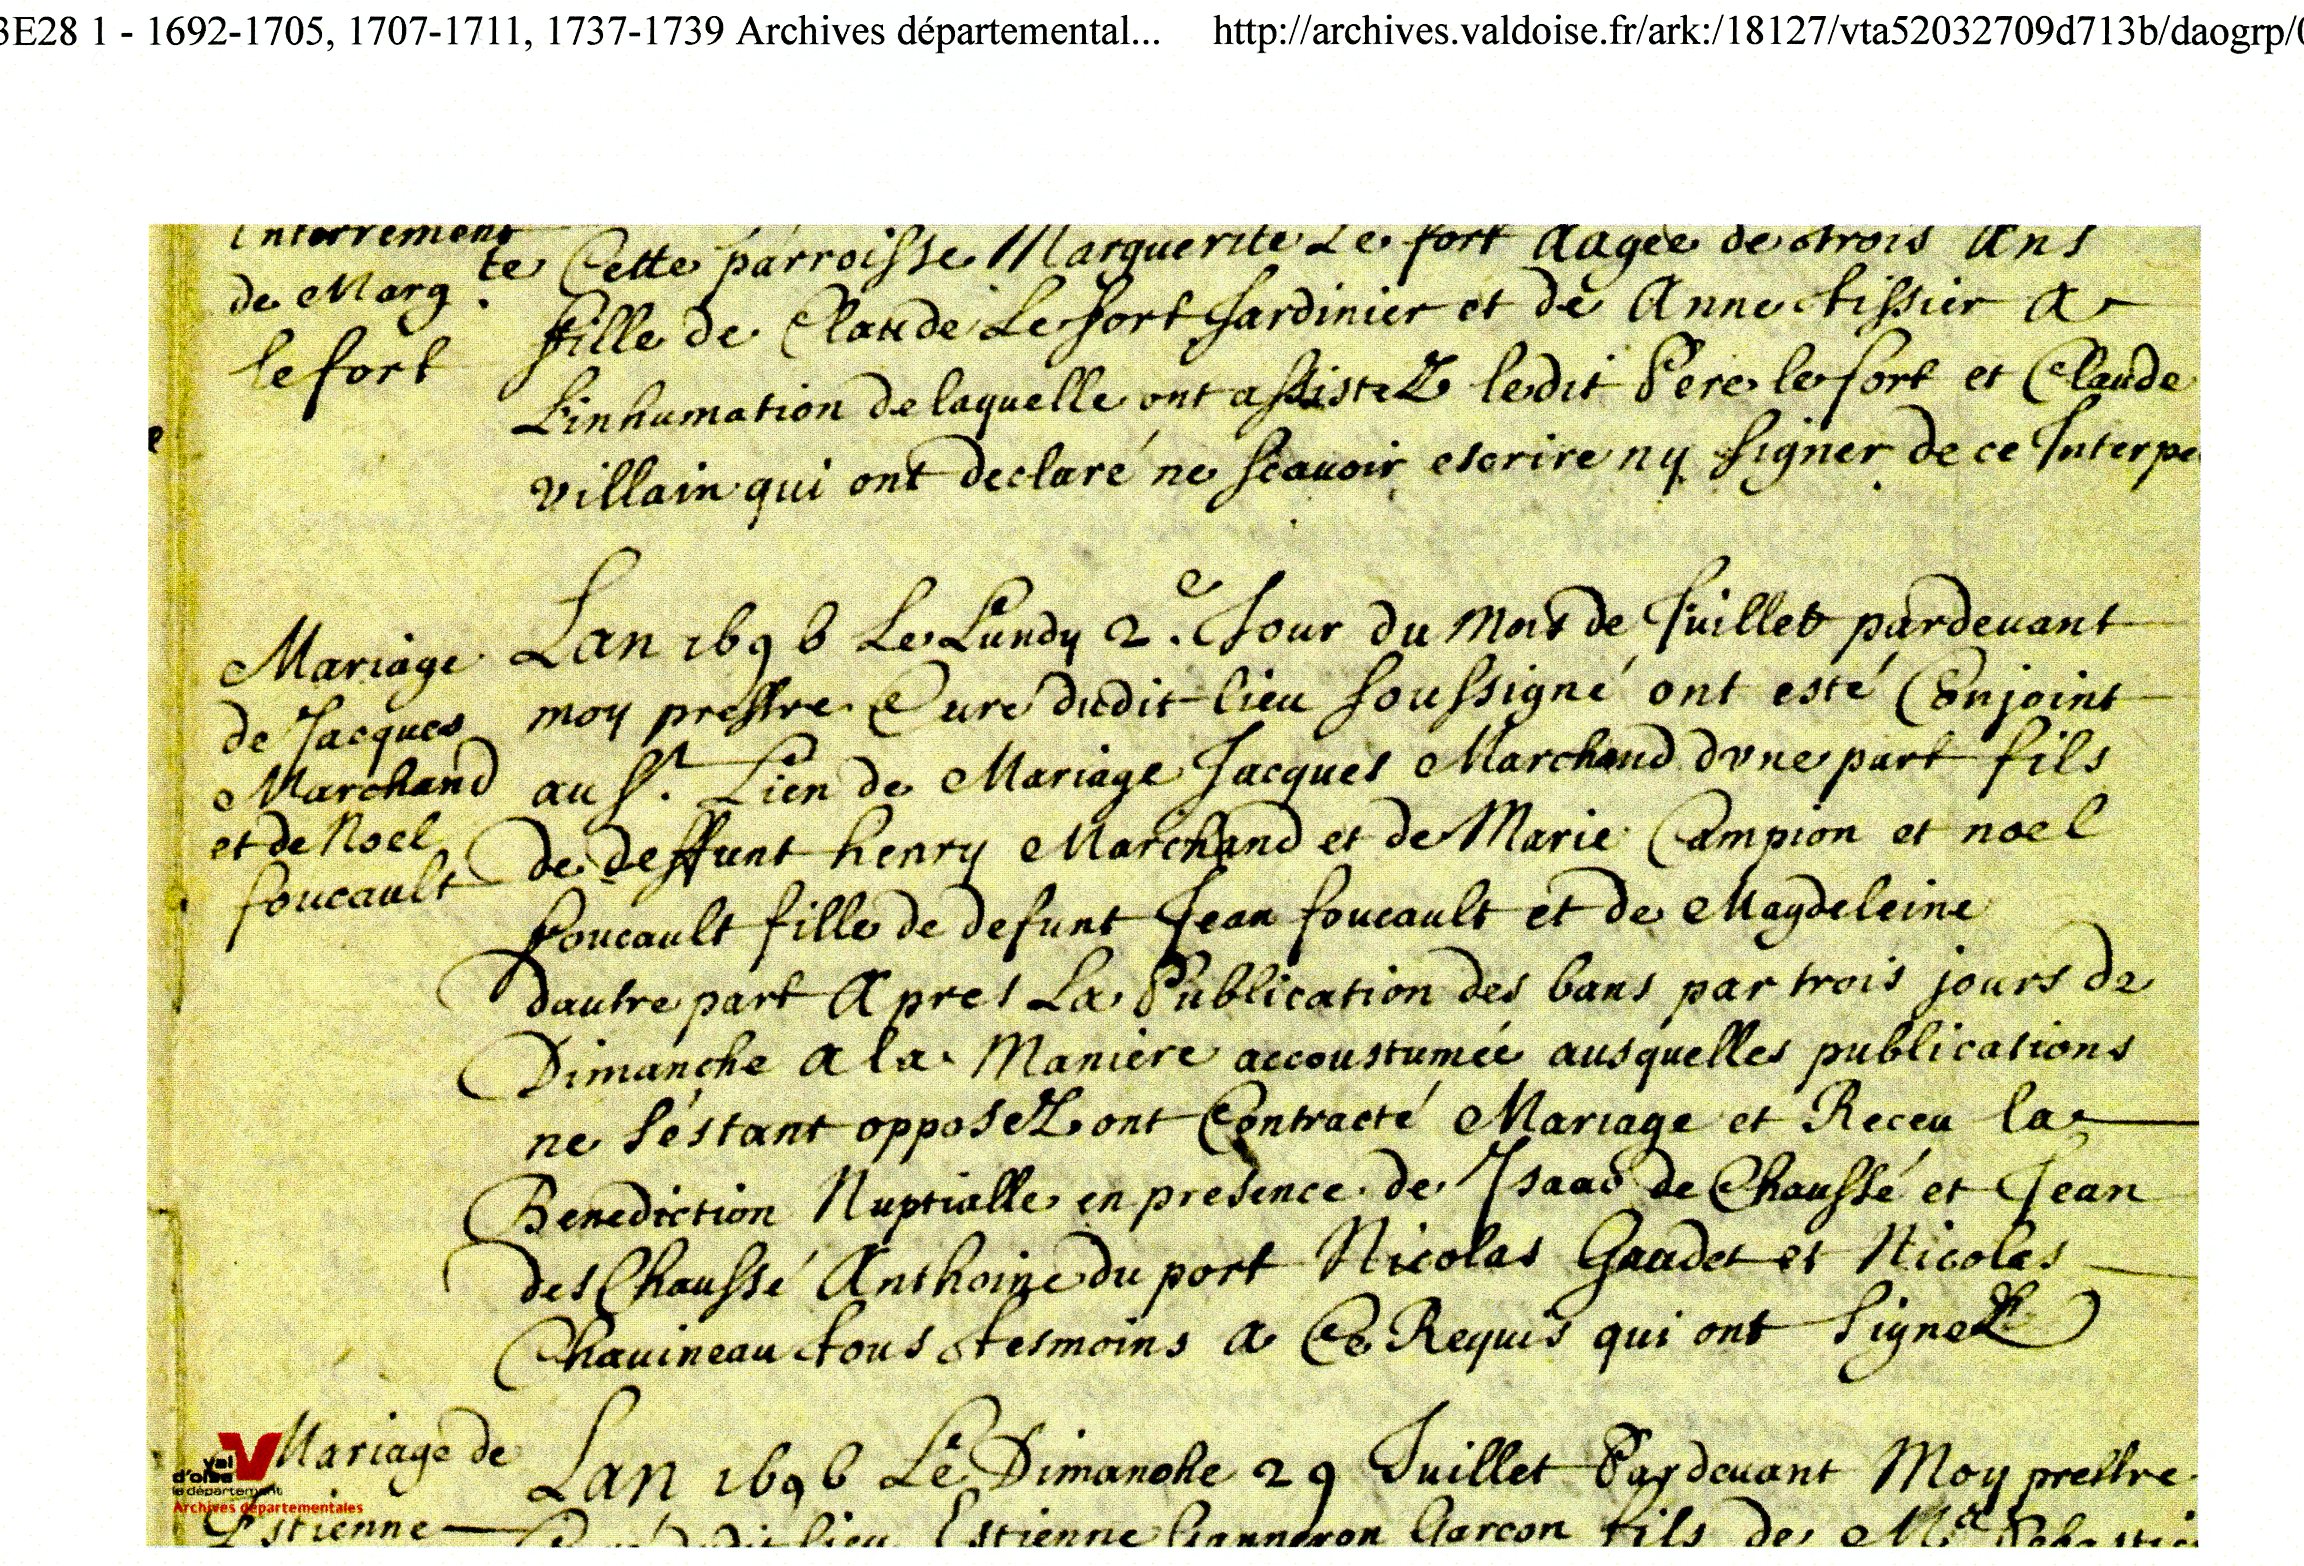 3E28 1 - 1692-1705, 1707-1711, 1737-1739 Archives départemental... http://archives.valdoise.fr/ark:/18127/vta52032709d713b/daogrp/0
Interrement
de Marg.te
le fort
Cette parroisse Marguerite Le fort Aagée de trois Ans
fille de Claude Le fort Jardinier et de Anne tissier A
Linhumation de laquelle ont assistéz ledit Pere le fort et Claude
villain qui ont declaré ne scauoir escrire ny signer de ce Interpe
Mariage
de Jacques
Marchand
et de Noel
foucault
Lan 1696 Le Lundy 2.e Jour du Mois de Juillet pardeuant
moy prestre Curé dudit lieu soussigné ont esté Conjoint
au St. Lien de Mariage Jacques Marchand dvne part fils
de deffunt henry Marchand et de Marie Campion et noel
foucault fille de defunt Jean foucault et de Magdeleine
dautre part Apres La Publication des bans par trois jours de
Dimanche a la Maniere accoustumée ausquelles publications
ne séstant opposéz ont Contracté Mariage et Receu la
Benediction Nuptialle en presence de Isaac de Chaussé et Jean
des Chaussé Anthoine du port Nicolas Gaudet et Nicolas
Chauineau tous tesmoins a Ce Requis qui ont signéz
Mariage de
Estienne
Lan 1696 Le Dimanche 29 Juillet Pardeuant Moy prestre
Curé dudit lieu Estienne Ganneron Garcon fils de
val
d'oise
le département
Archives départementales